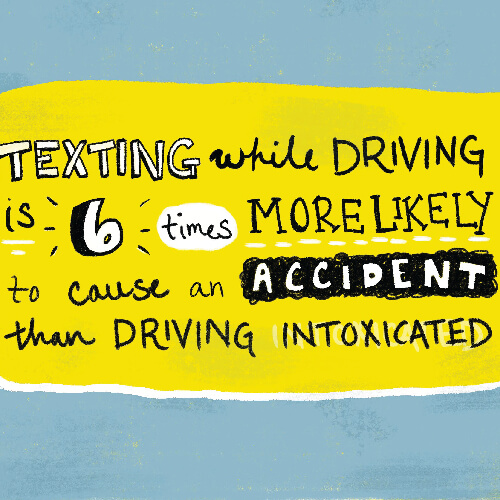 TEXTING while DRIVING
is 6 times MORE LIKELY
to cause an ACCIDENT
than DRIVING INTOXICATED